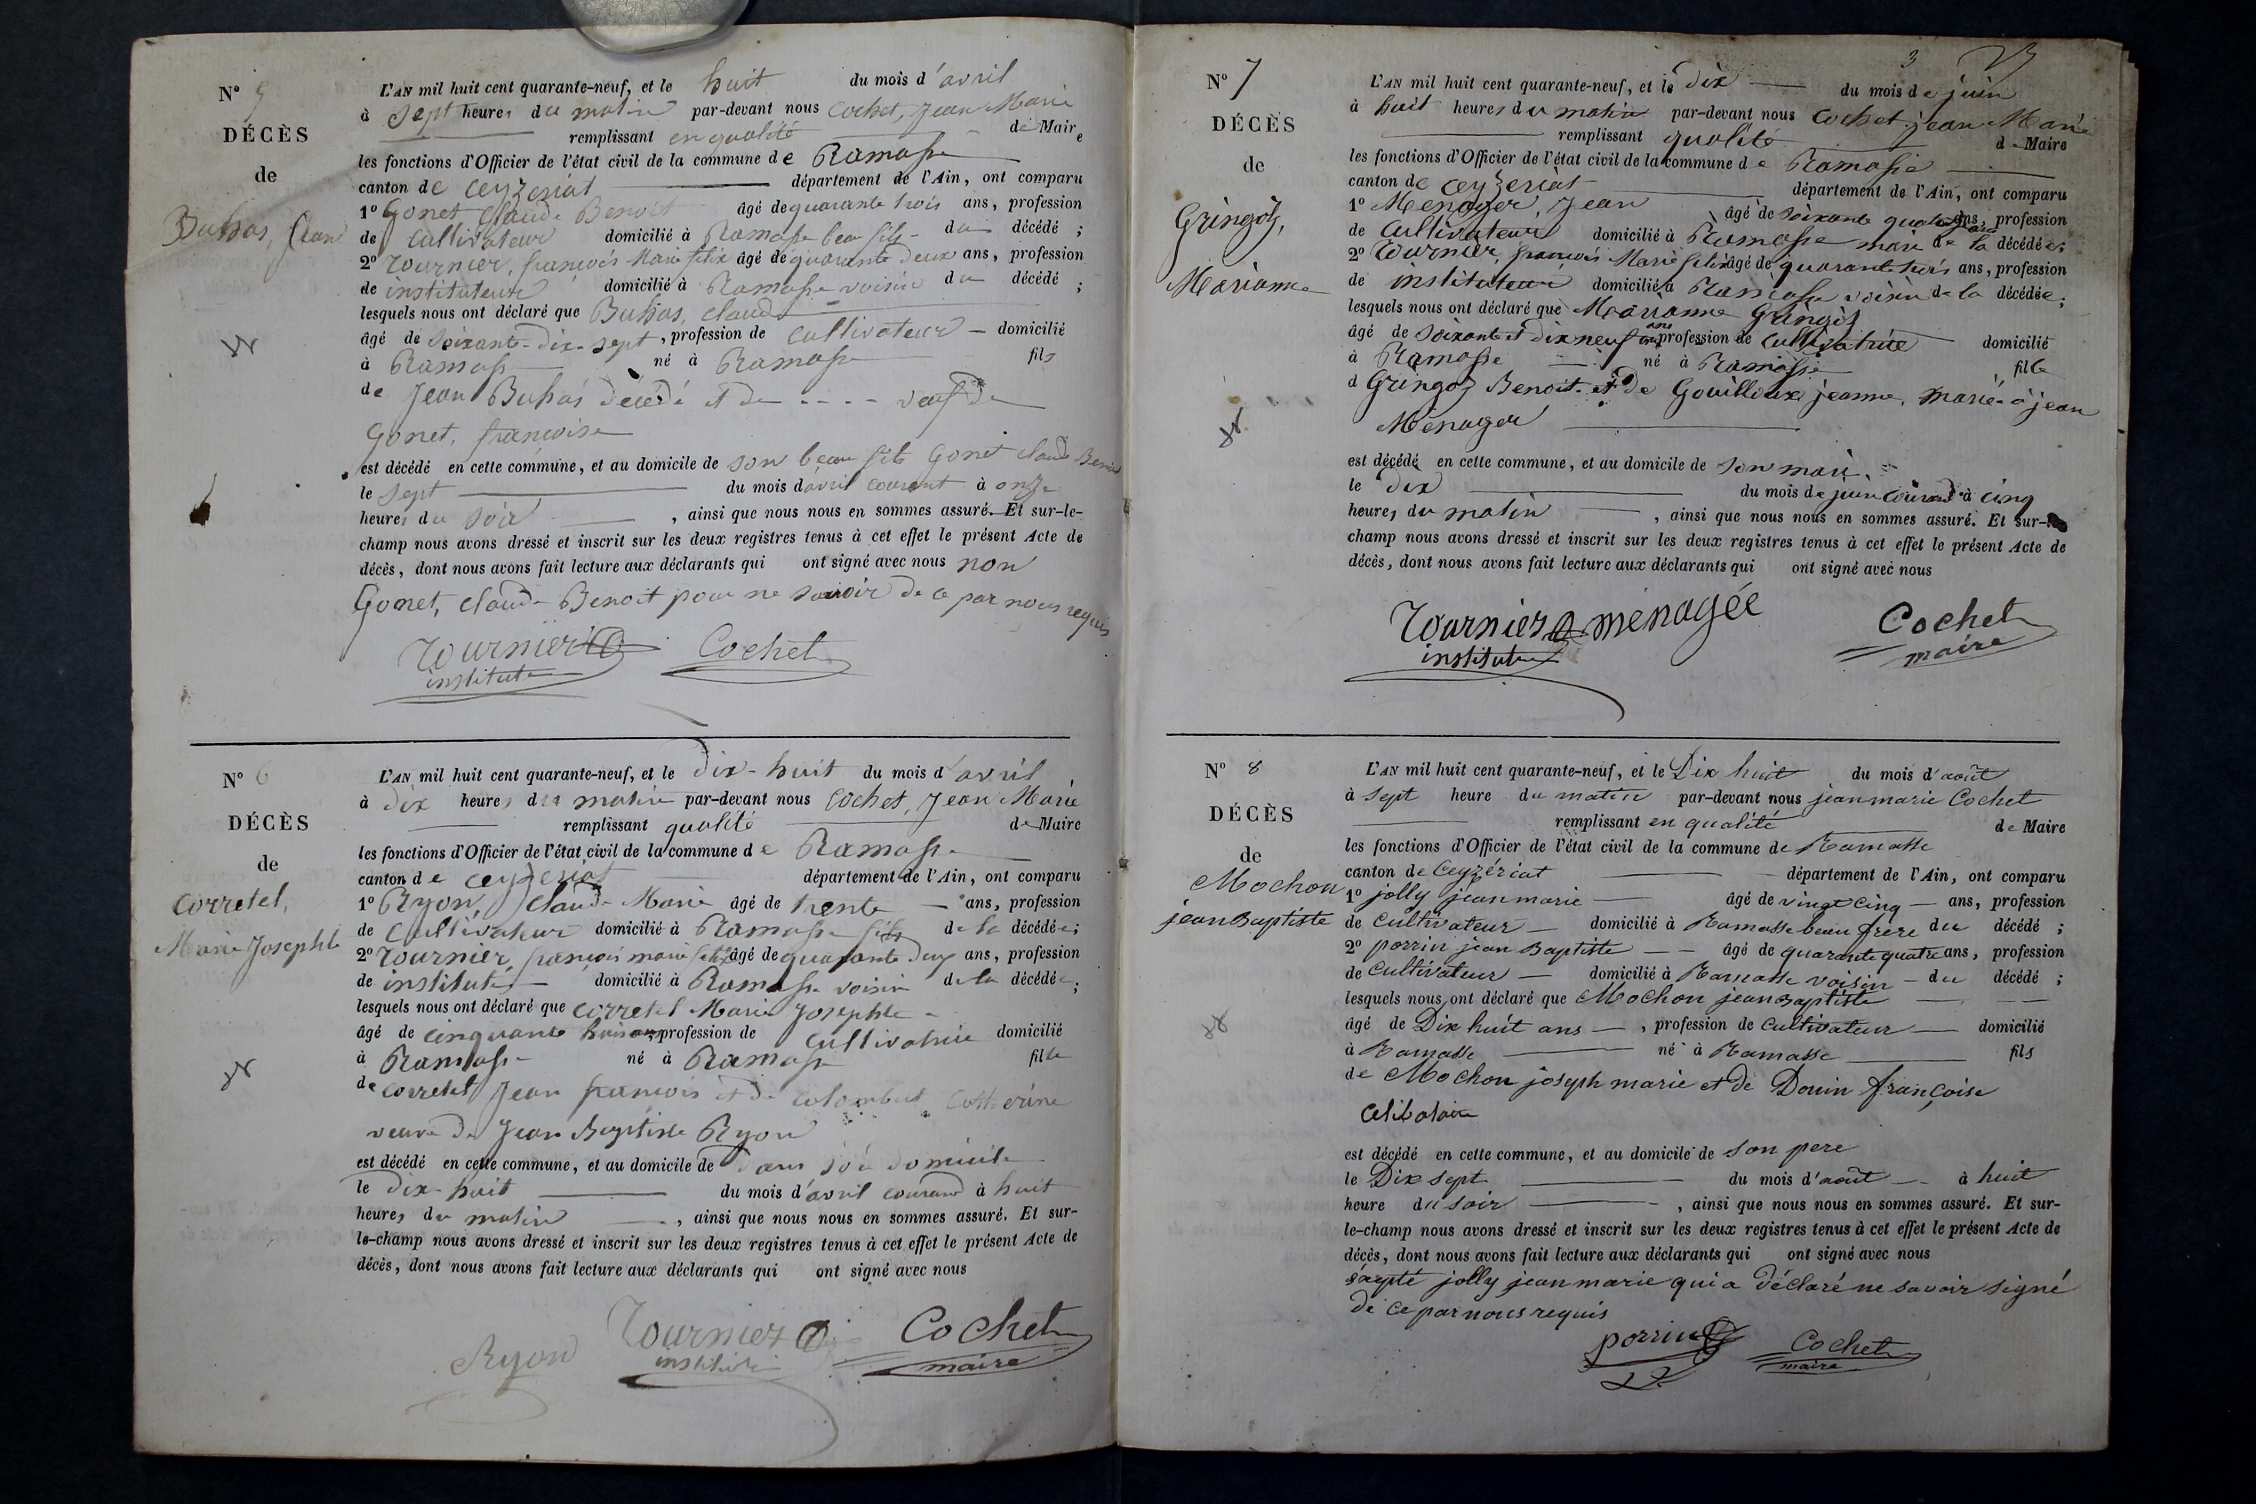 N° 5
DÉCÈS
de
Buhas, Claude
L'AN mil huit cent quarante-neuf, et le huit du mois d'avril
à sept heures du matin par-devant nous Cochet, Jean Marie
remplissant en qualité de Maire
les fonctions d'Officier de l'état civil de la commune de Ramasse
canton de Ceyzeriat département de l'Ain, ont comparu
1° Gonet Claude Benoit âgé de quarante trois ans, profession
de cultivateur domicilié à Ramasse beau fils du décédé ;
2° Tournier, françois Marie felix âgé de quarante deux ans, profession
de instituteur domicilié à Ramasse voisin du décédé ;
lesquels nous ont déclaré que Buhas, Claude
âgé de soixante-dix-sept, profession de cultivateur domicilié
à Ramasse né à Ramasse fils
de Jean Buhas décédé et de - - - - veuf de
Gonet, françoise
est décédé en cette commune, et au domicile de son beau fils Gonet Claude Benoit
le sept du mois d'avril courant à onze
heures du soir, ainsi que nous nous en sommes assuré. Et sur-le-
champ nous avons dressé et inscrit sur les deux registres tenus à cet effet le présent Acte de
décès, dont nous avons fait lecture aux déclarants qui ont signé avec nous non
Gonet, Claude Benoit pour ne savoir de ce par nous requis
Tournier Cochet
institut
N° 6
DÉCÈS
de
Corretel,
Marie Josephte
L'AN mil huit cent quarante-neuf, et le dix-huit du mois d'avril
à dix heures du matin par-devant nous Cochet, Jean Marie
remplissant qualité de Maire
les fonctions d'Officier de l'état civil de la commune de Ramasse
canton de Ceyzeriat département de l'Ain, ont comparu
1° Ryon, Claude Marie âgé de trente ans, profession
de cultivateur domicilié à Ramasse fils de la décédée ;
2° Tournier, françois marie felix âgé de quarante deux ans, profession
de institut domicilié à Ramasse voisin de la décédée ;
lesquels nous ont déclaré que Corretel Marie Josephte
âgé de cinquante huit ans, profession de cultivatrice domicilié
à Ramasse né à Ramasse fille
de Corretel Jean françois et de Colombet Catherine
veuve de Jean Baptiste Ryon
est décédé en cette commune, et au domicile de dans son domicile
le dix-huit du mois d'avril courant à huit
heures du matin, ainsi que nous nous en sommes assuré. Et sur-
le-champ nous avons dressé et inscrit sur les deux registres tenus à cet effet le présent Acte de
décès, dont nous avons fait lecture aux déclarants qui ont signé avec nous
Ryon Tournier Cochet
maire
3
N° 7
DÉCÈS
de
Gringoz,
Marianne
L'AN mil huit cent quarante-neuf, et le dix du mois de juin
à huit heures du matin par-devant nous Cochet, jean Marie
remplissant qualité de Maire
les fonctions d'Officier de l'état civil de la commune de Ramasse
canton de Ceyzeriat département de l'Ain, ont comparu
1° Menager, Jean âgé de soixante quatorze ans, profession
de cultivateur domicilié à Ramasse mari de la décédée ;
2° Tournier, françois Marie felix âgé de quarante trois ans, profession
de instituteur domicilié à Ramasse voisin de la décédée ;
lesquels nous ont déclaré que Marianne Gringoz
âgé de soixante et dix neuf ans profession de cultivatrice domicilié
à Ramasse né à Ramasse fille
d Gringoz Benoit et de Gouilloux jeanne, mariée à jean
Menager
est décédé en cette commune, et au domicile de son mari
le dix du mois de juin courant à cinq
heures du matin, ainsi que nous nous en sommes assuré. Et sur-le
champ nous avons dressé et inscrit sur les deux registres tenus à cet effet le présent Acte de
décès, dont nous avons fait lecture aux déclarants qui ont signé avec nous
Tournier menagée Cochet
institut maire
N° 8
DÉCÈS
de
Mochon
jean Baptiste
L'AN mil huit cent quarante-neuf, et le Dix huit du mois d'août
à sept heure du matin par-devant nous jean marie Cochet
remplissant en qualité de Maire
les fonctions d'Officier de l'état civil de la commune de Ramasse
canton de Ceyzériat département de l'Ain, ont comparu
1° jolly jean marie âgé de vingt cinq ans, profession
de cultivateur domicilié à Ramasse beau frère du décédé ;
2° porrin jean Baptiste âgé de quarante quatre ans, profession
de cultivateur domicilié à Ramasse voisin du décédé ;
lesquels nous ont déclaré que Mochon jean Baptiste
âgé de Dix huit ans, profession de cultivateur domicilié
à Ramasse né à Ramasse fils
de Mochon joseph marie et de Douin françoise
celibataire
est décédé en cette commune, et au domicile de son pere
le Dix sept du mois d'août à huit
heure du soir, ainsi que nous nous en sommes assuré. Et sur-
le-champ nous avons dressé et inscrit sur les deux registres tenus à cet effet le présent Acte de
décès, dont nous avons fait lecture aux déclarants qui ont signé avec nous
éxcepté jolly jean marie qui a déclaré ne savoir signé
de ce par nous requis
porrin Cochet
maire